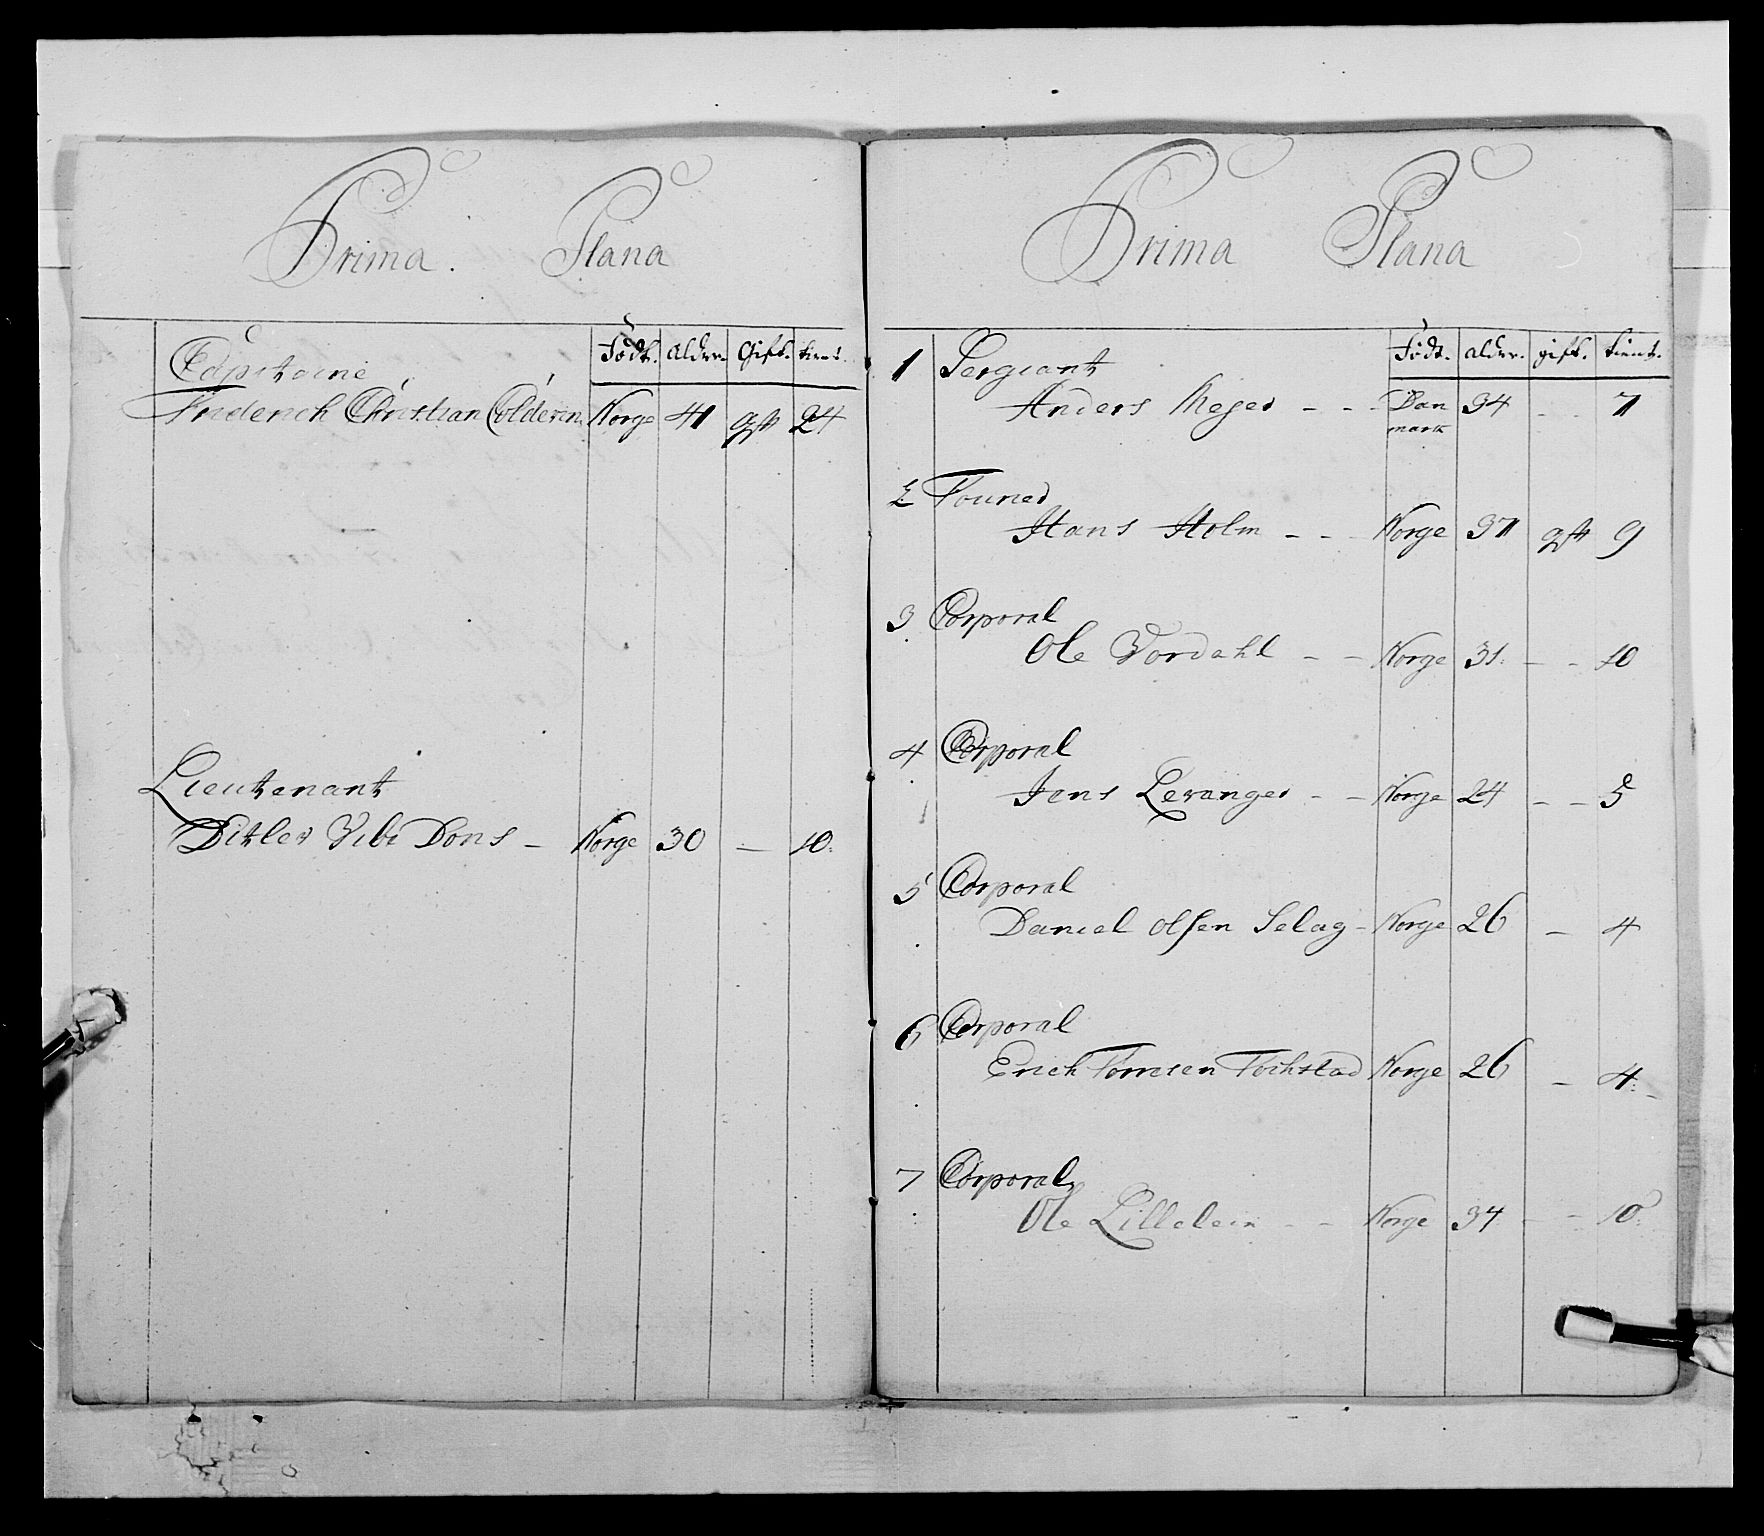 Prima. Plana
Födt. alder. Gift. tient.
Capitaine
Friderich Christian Coldevin Norge 41 gift 24
Lieutenant
Ditlev Vibe Dons - Norge 30 - 10.
Prima Plana
Födt. alder. gift. tient.
1 Sergiant
Anders Meyer - - - Danmark 34 - - 7
2 Fourier
Hans Holm - - - Norge 37 gift 9
3 Corporal
Ole Vordahl - - Norge 31. - - 10
4 Corporal
Jens Levanger - - Norge 24 - - 5
5 Corporal
Daniel Olsen Selag - Norge 26 - 4
6 Corporal
Erich Torresen Norge 26 - 4.
7 Corporal
Ole - - Norge 34 - - 10.